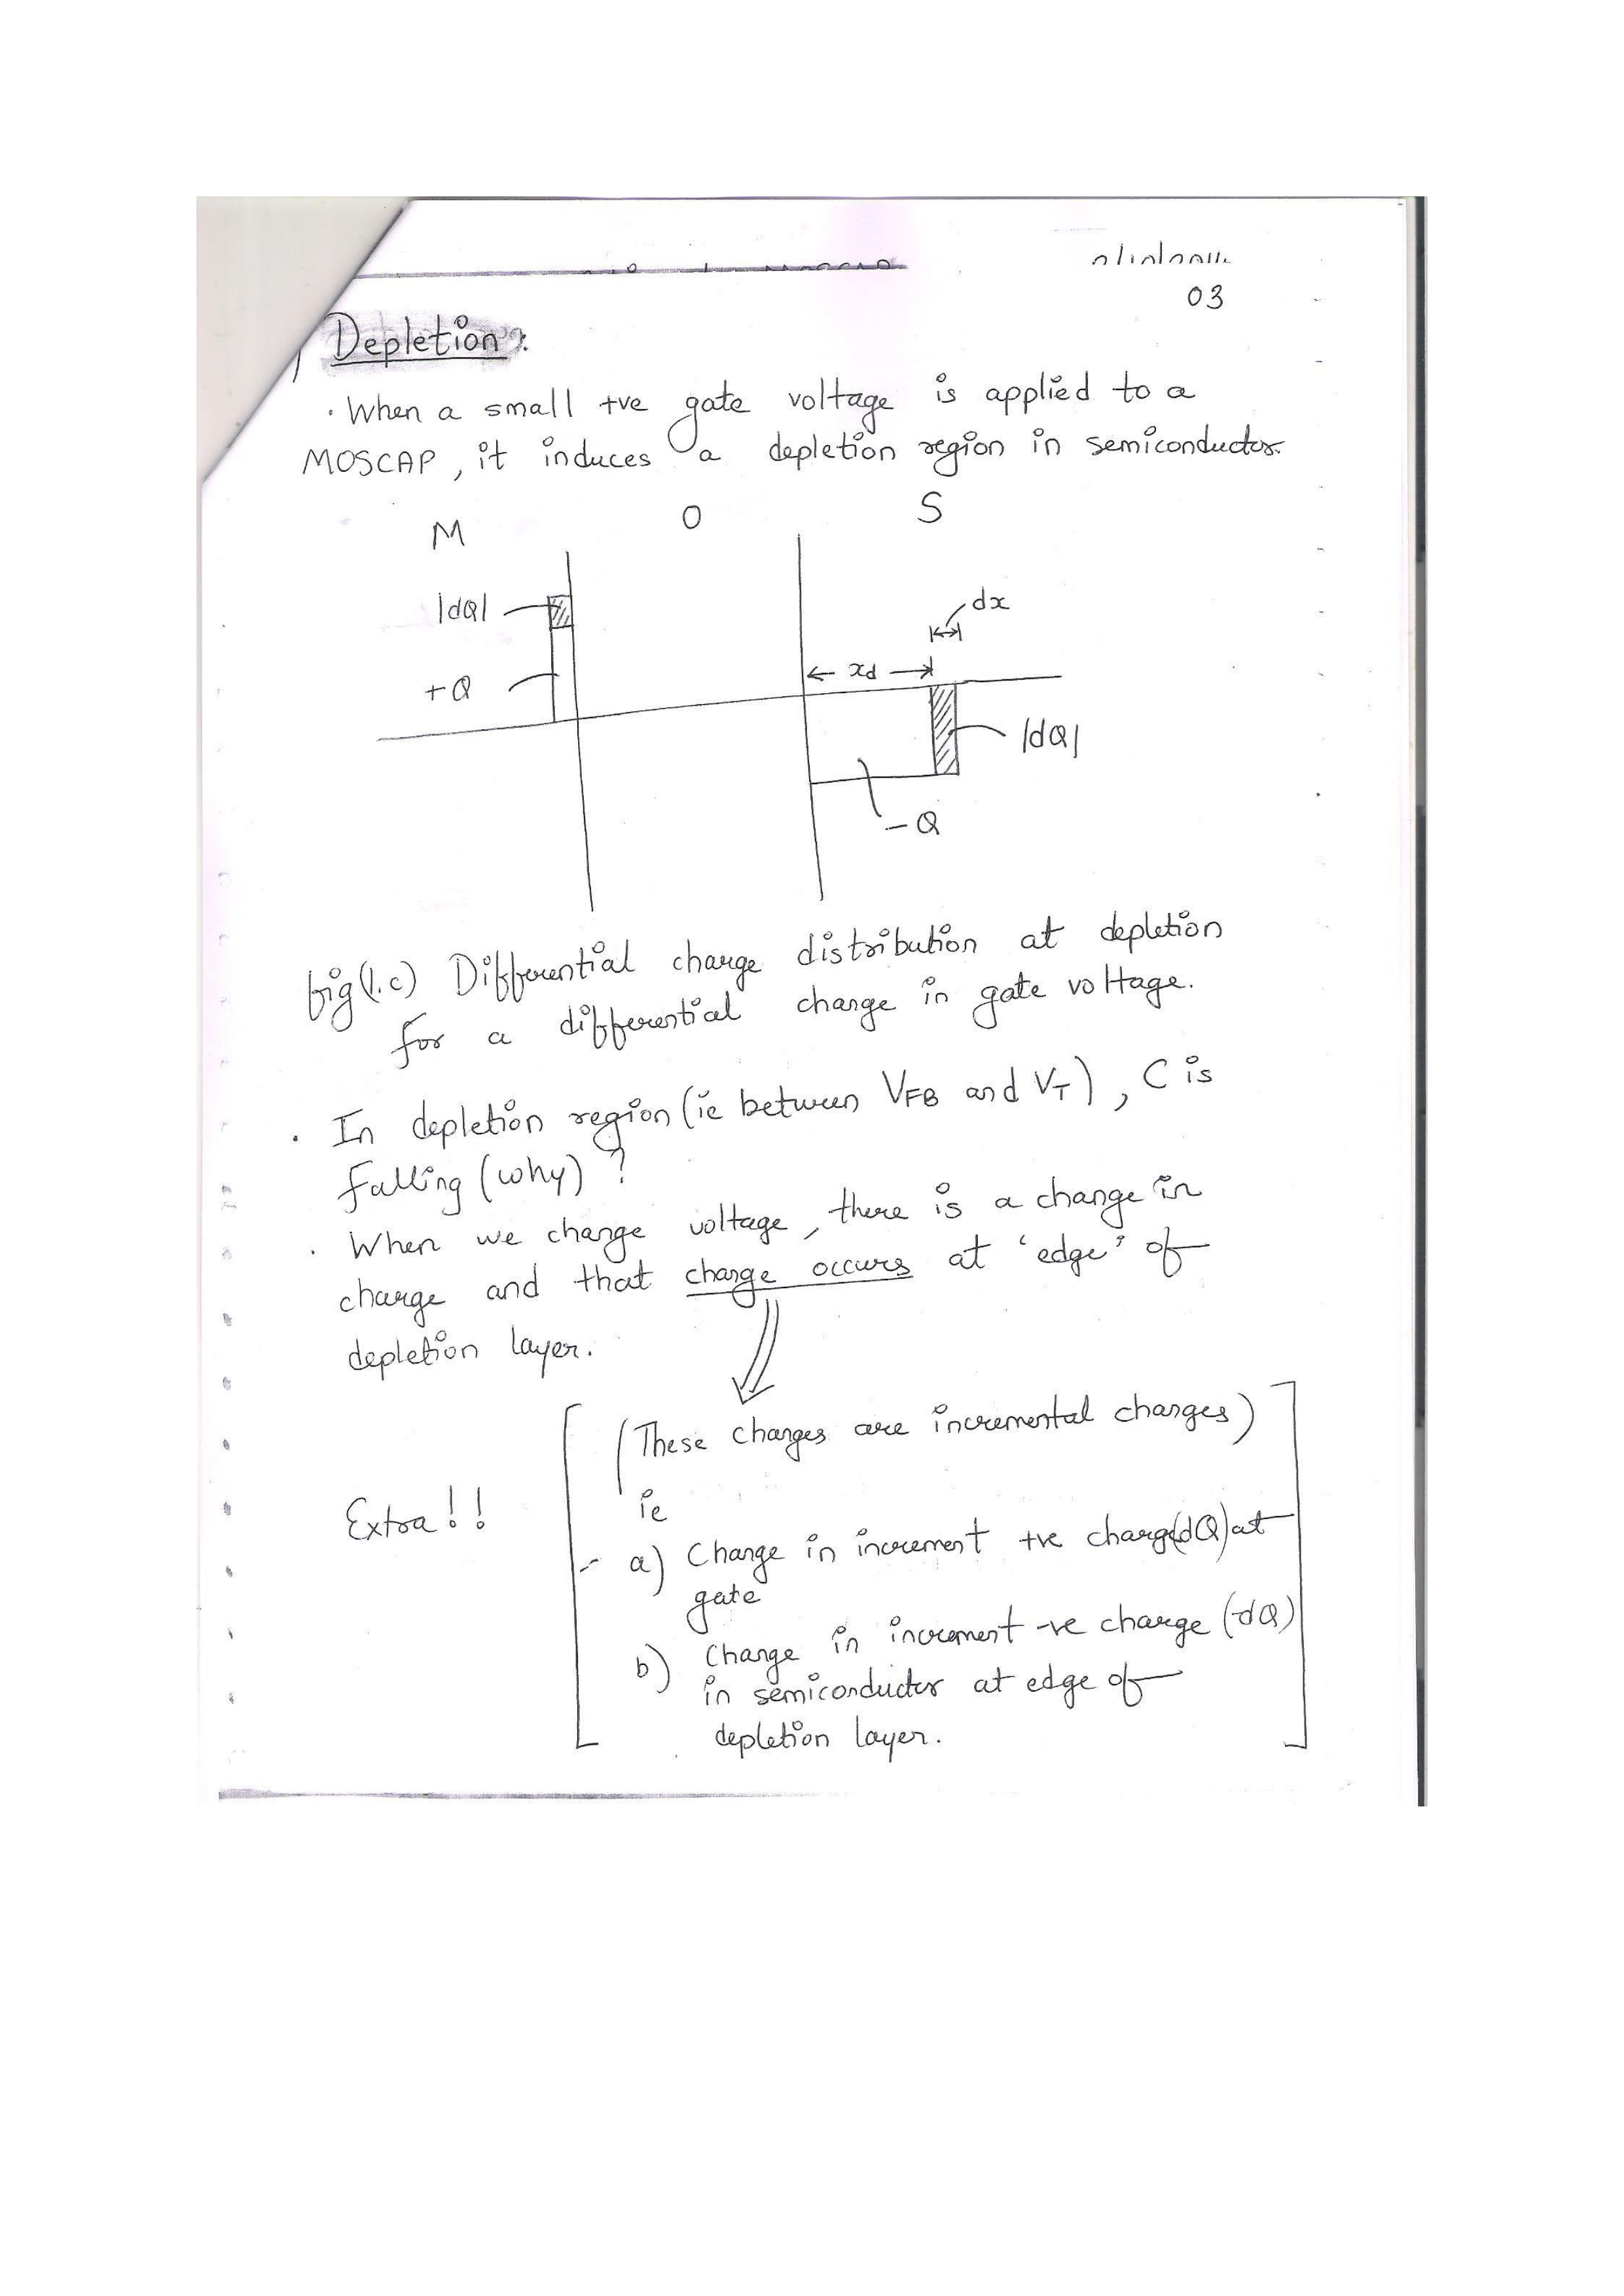 03
Depletion:
· When a small +ve gate voltage is applied to a
MOSCAP, it induces a depletion region in semiconductor.
M O S
|dQ|
dx
xd
+Q
|dQ|
-Q
fig(1.c) Differential charge distribution at depletion
for a differential change in gate voltage.
· In depletion region (ie between VFB and VT), C is
falling (why)?
· When we change voltage, there is a change in
charge and that charge occurs at 'edge' of
depletion layer.
(These changes are incremental changes)
ie
Extra!!
a) Change in increment +ve charge(dQ) at
gate
b) Change in increment -ve charge (-dQ)
in semiconductor at edge of
depletion layer.